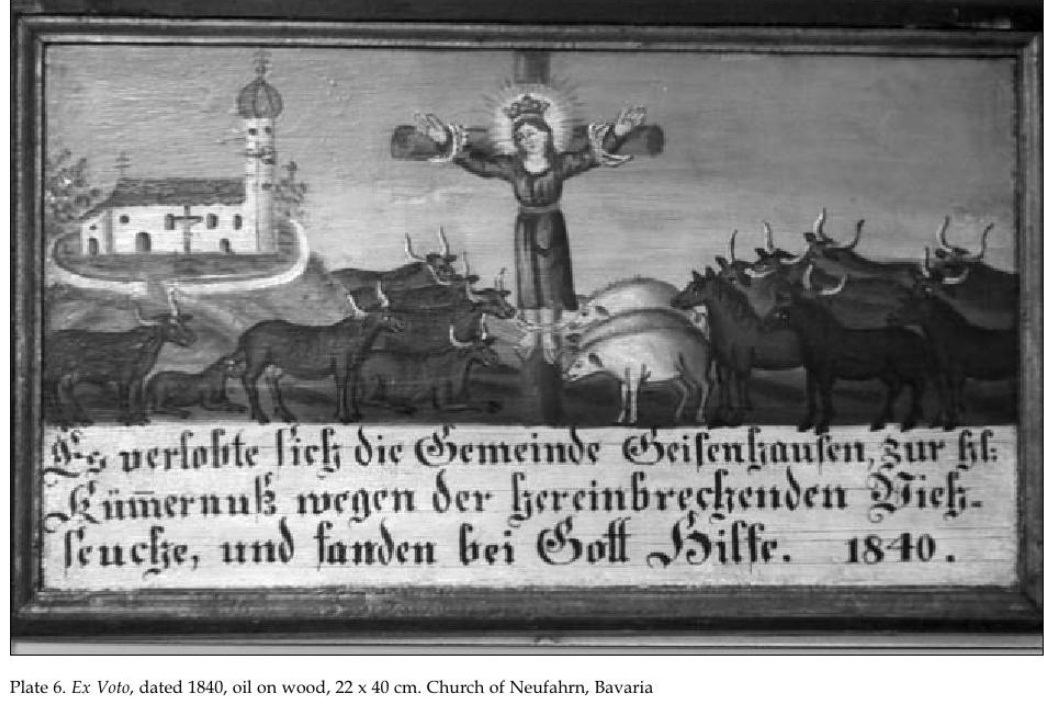 Es verlobte sich die Gemeinde Geisenhausen, zur hl:
Küm̅ernuß wegen der hereinbrechenden Vieh-
seuche, und fanden bei Gott Hilfe. 1840.
Plate 6. Ex Voto, dated 1840, oil on wood, 22 x 40 cm. Church of Neufahrn, Bavaria